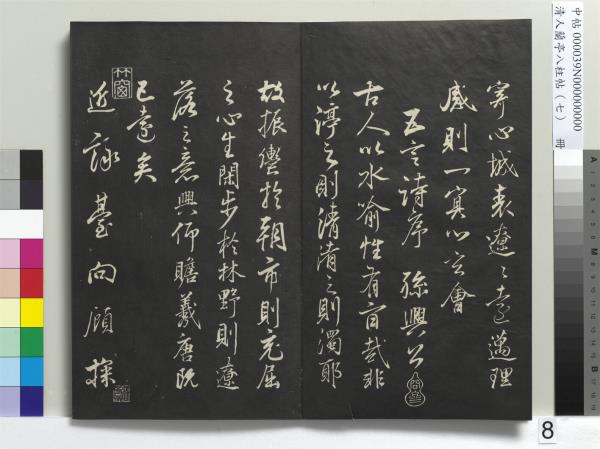 中帖 000039N000000000 冊
清人蘭亭八柱帖（七）
寄心城表遼〻遠邁理
感則一冥心玄會
五言詩序 孫興公
古人以水喻性有旨哉非
以渟之則清淆之則濁耶
故振轡於朝市則充屈
之心生閑步於林野則遼
落之意興仰瞻羲唐既
已遠矣
近詠臺向顧探
竹窗
8